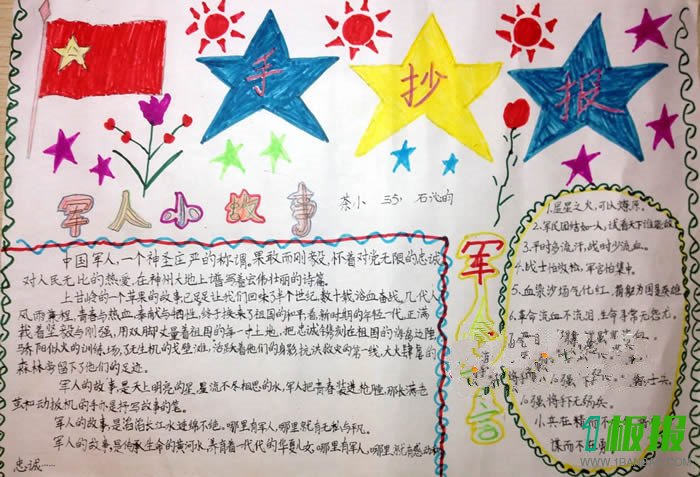 手抄报
军人小故事
茶小
中国军人，一个神圣庄严的称谓。果敢而刚毅，怀着对党无限的忠诚
对人民无比的热爱，在神州大地上谱写着宏伟壮丽的诗篇。
上甘岭的一个苹果的故事已足让我们回味半个世纪，数十载浴血奋战，几代人
风雨兼程，青春与热血，奉献与牺牲，终于换来了祖国的和平，看新时期的年轻一代，正满
载着坚毅与刚强，用双脚丈量着祖国的每一寸土地，把忠诚镌刻在祖国的海岛边陲
与骄阳似火的训练场，了无生机的戈壁滩，活跃着他们的身影，抗洪救灾的第一线，大火肆虐的
森林旁留下了他们的足迹。
军人的故事是天上明亮的星，星流不尽相思的水，军人把青春装进枪膛，那长满老
茧和动扳机的手亦是抒写故事的笔。
军人的故事，是滔滔长江水连绵不绝，哪里有军人，哪里就有无私与平凡。
军人的故事，是传承生命的黄河水，养育着一代代的华夏儿女，哪里有军人，哪里就有感动和
忠诚……
军人
言
1.星星之火，可以燎原。
2.军民团结如一人，试看天下谁能敌
3.平时多流汗，战时少流血。
4.战士怕收枪，军官怕集中。
5.血染沙场气化虹，捐躯为国是英雄
6.革命流血不流泪，生命寻常无怨尤。
小兵在精而不
谋而不在
板报